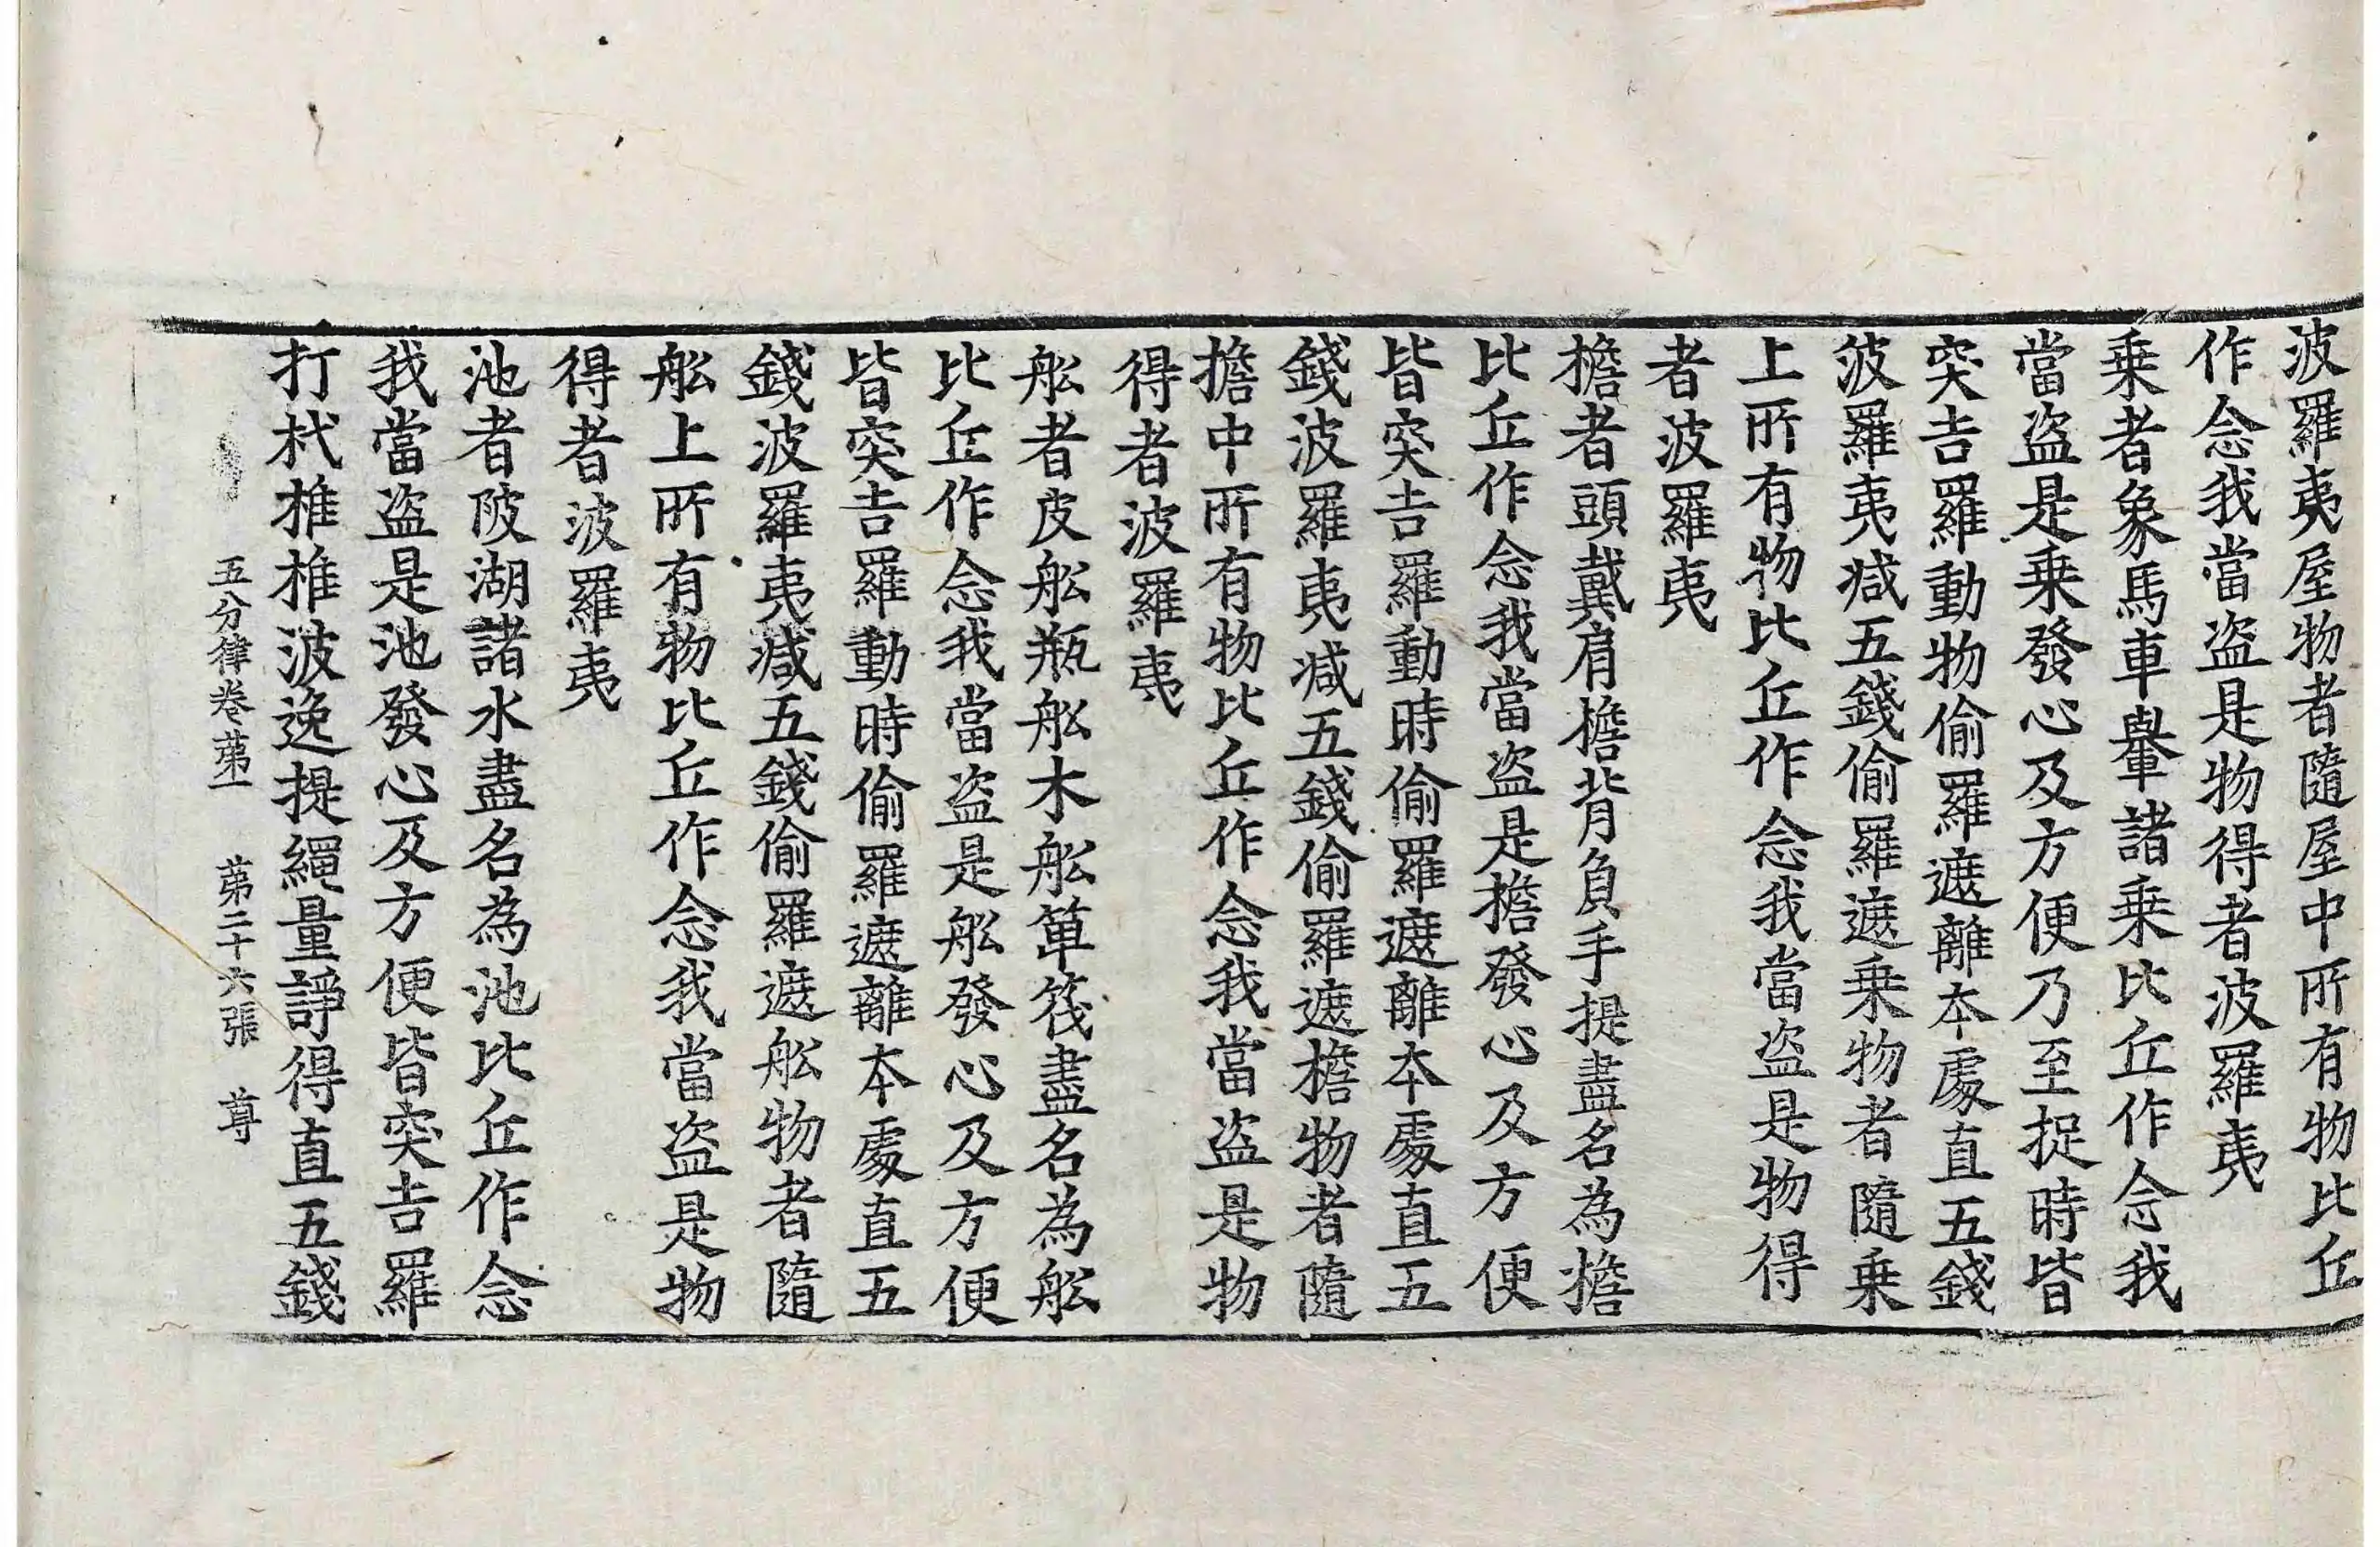 波羅夷屋物者隨屋中所有物比丘
作念我當盗是物得者波羅夷
乗者象馬車轝諸乗比丘作念我
當盗是乗發心及方便乃至捉時皆
突吉羅動物偷羅遮離本處直五錢
波羅夷减五錢偷羅遮乗物者隨乗
上所有物比丘作念我當盗是物得
者波羅夷
擔者頭戴肩擔背負手提盡名為擔
比丘作念我當盗是擔發心及方便
皆突吉羅動時偷羅遮離本處直五
錢波羅夷减五錢偷羅遮擔物者隨
擔中所有物比丘作念我當盗是物
得者波羅夷
舩者皮舩瓶舩木舩箄筏盡名為舩
比丘作念我當盗是舩發心及方便
皆突吉羅動時偷羅遮離本處直五
錢波羅夷减五錢偷羅遮舩物者隨
舩上所有物比丘作念我當盗是物
得者波羅夷
池者陂湖諸水盡名為池比丘作念
我當盗是池發心及方便皆突吉羅
打杙椎椎波逸提繩量諍得直五錢
五分律卷苐一 苐二十六張 尊